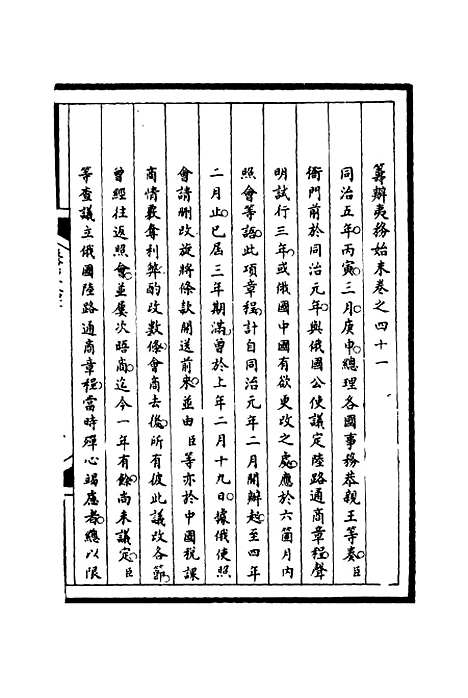 籌辦夷務始末卷之四十一
同治五年丙寅三月庚申總理各國事務恭親王等奏臣
衙門前於同治元年與俄國公使議定陸路通商章程聲
明試行三年或俄國中國有欲更改之處應於六箇月內
照會等語此項章程計自同治元年二月開辦起至四年
二月止已屆三年期滿曾於上年二月十九日據俄使照
會請刪改旋將條款開送前來並由臣等亦於中國稅課
商情覈奪利弊酌改數條會商去後所有彼此議改各節
曾經往返照會並屢次晤商迄今一年有餘尚未議定臣
等查議立俄國陸路通商章程當時殫心竭慮者總以限